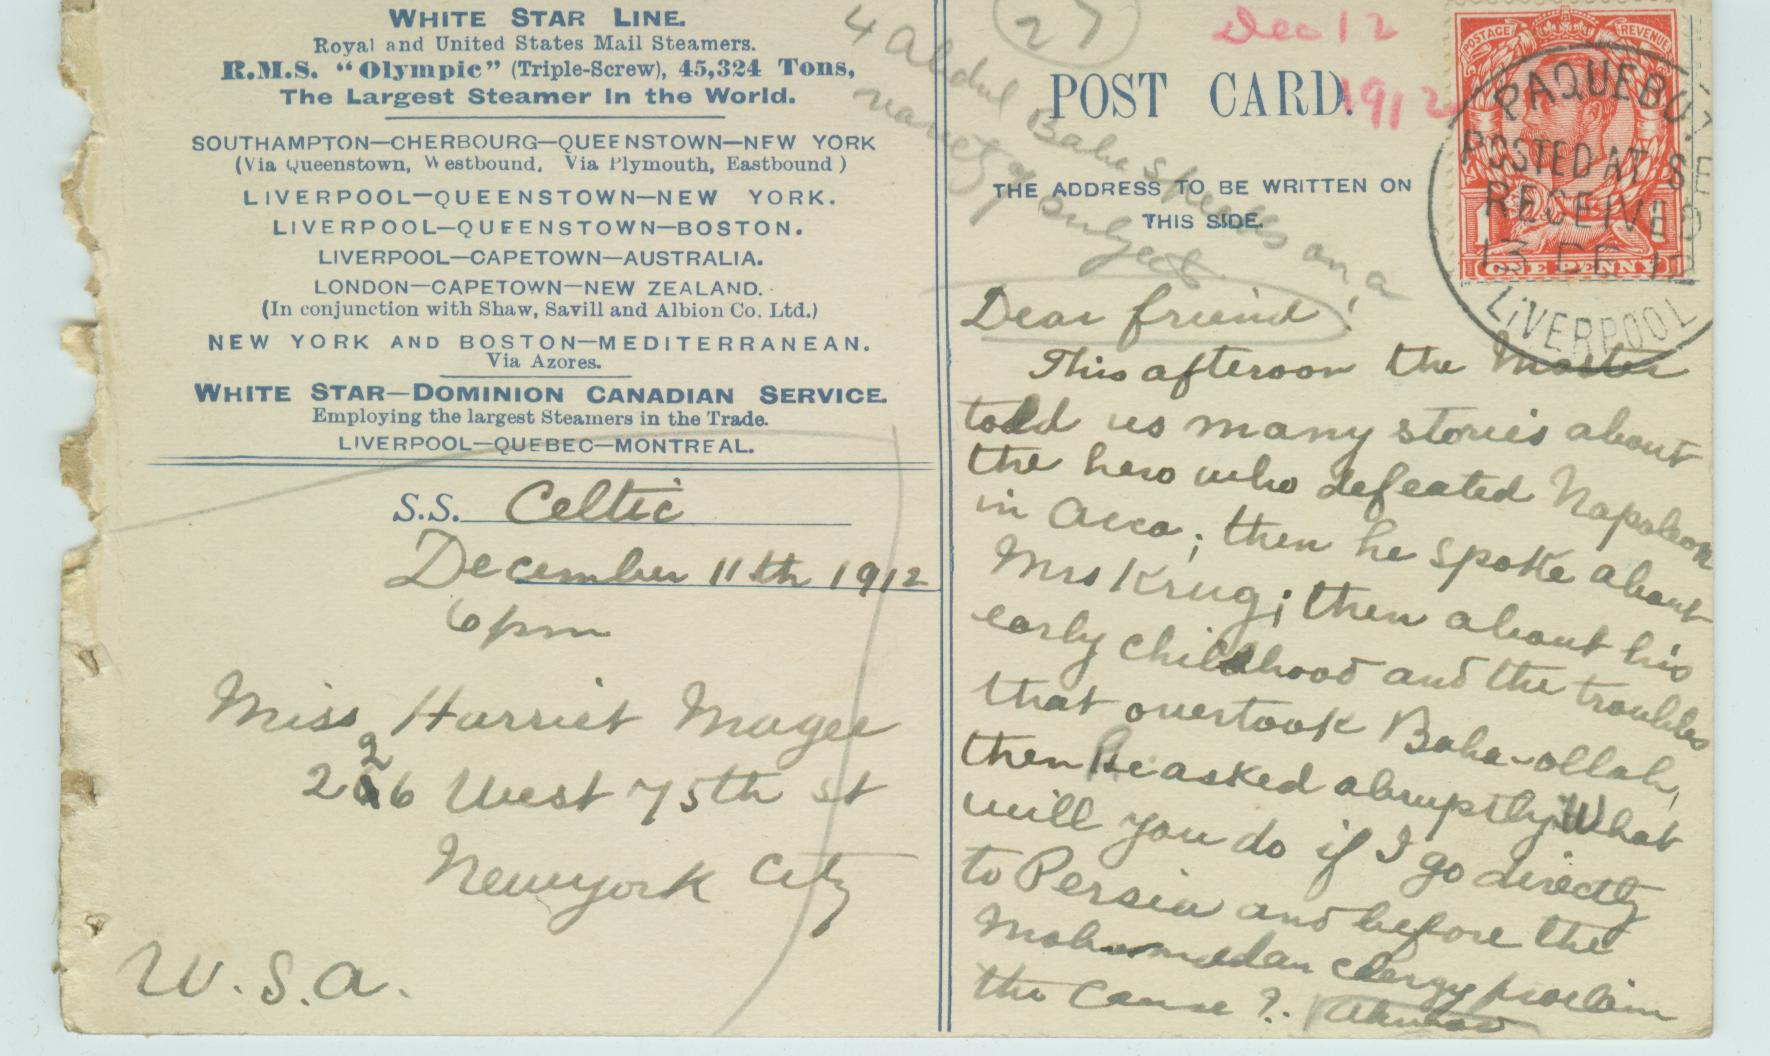 WHITE STAR LINE.
Royal and United States Mail Steamers.
R.M.S. "Olympic" (Triple-Screw), 45,324 Tons,
The Largest Steamer in the World.
SOUTHAMPTON—CHERBOURG—QUEENSTOWN—NEW YORK
(Via Queenstown, Westbound, Via Plymouth, Eastbound)
LIVERPOOL—QUEENSTOWN—NEW YORK.
LIVERPOOL—QUEENSTOWN—BOSTON.
LIVERPOOL—CAPETOWN—AUSTRALIA.
LONDON—CAPETOWN—NEW ZEALAND.
(In conjunction with Shaw, Savill and Albion Co. Ltd.)
NEW YORK AND BOSTON—MEDITERRANEAN.
Via Azores.
WHITE STAR—DOMINION CANADIAN SERVICE.
Employing the largest Steamers in the Trade.
LIVERPOOL—QUEBEC—MONTREAL.
S.S. Celtic
December 11th 1912
6 pm
Miss Harriet Magee
226 West 75th st
Newyork City
U.S.A.
27
Dec 12
1912
4 Abdul Baha speaks on a
variety of subject
POST CARD.
THE ADDRESS TO BE WRITTEN ON
THIS SIDE.
POSTAGE REVENUE
1 1
ONE PENNY
PAQUEBOT
POSTED AT SE
RECEIVED
13 DE 12
LIVERPOOL
Dear friend!
This afteroon the Master
told us many stories about
the hero who defeated Napoleon
in Acca; then he spoke about
Mrs Krug; then about his
early childhood and the troubles
that overtook Baha-ollah,
then He asked abruptly What
will you do if I go directly
to Persia and before the
Mohamedan clergy proclaim
the Cause? Ahmad